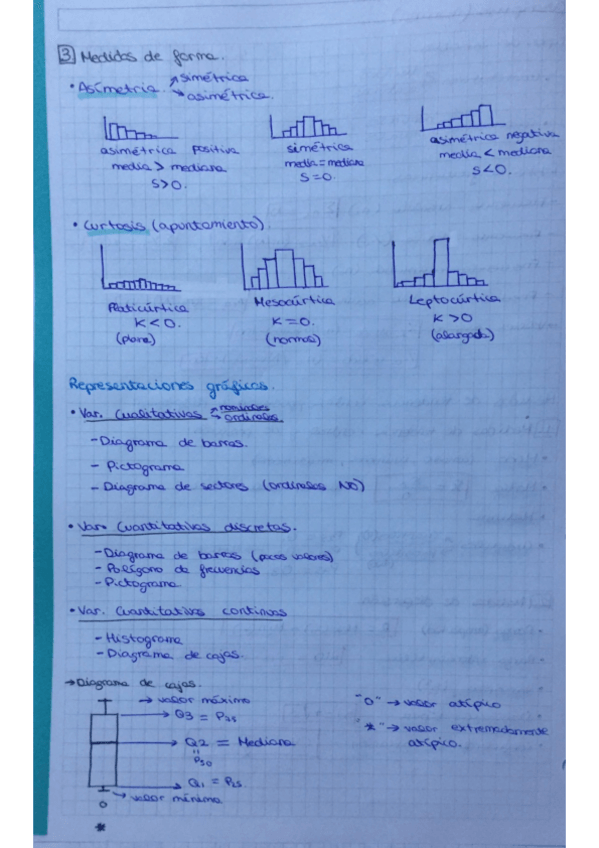 3 Medidas de forma.
• Asimetría. ↗ simétrica
↘ asimétrica.
asimétrica positiva
media > mediana
S>0.
simétrica
media = mediana
S=0.
asimétrica negativa
media < mediana
S<0.
• Curtosis (apuntamiento).
Platicúrtica
K<0.
(plana)
Mesocúrtica
K=0.
(normal)
Leptocúrtica
K>0
(alargada)
Representaciones gráficas.
• Var. Cualitativas ↗ nominales
→ ordinales
- Diagrama de barras.
- Pictograma
- Diagrama de sectores (ordinales NO)
• Var. Cuantitativas discretas.
- Diagrama de barras (pocos valores)
- Polígono de frecuencias
- Pictograma
• Var. Cuantitativas continuas
- Histograma
- Diagrama de cajas.
→ Diagrama de cajas.
→ valor máximo
→ Q3 = P75
→ Q2 = Mediana
"
P50
→ Q1 = P25
→ valor mínimo.
o
*
"o" → valor atípico
"*" → valor extremadamente
atípico.